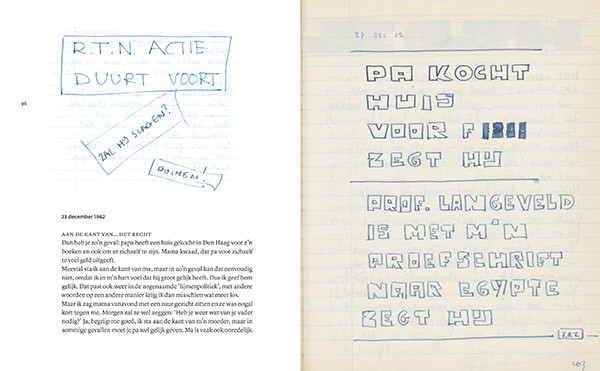 R.T.N. ACTIE
DUURT VOORT
ZAL HIJ SLAGEN?
DUIMEN!
96
23 december 1962
AAN DE KANT VAN... HET RECHT
Dan heb je zo'n geval: papa heeft een huis gekocht in Den Haag voor z'n
boeken en ook om er zichzelf te zijn. Mama kwaad, dat pa voor zichzelf
te veel geld uitgeeft.
Meestal sta ik aan de kant van ma, maar in zo'n geval kan dat eenvoudig
niet, omdat ik in m'n hart voel dat hij groot gelijk heeft. Dus ik geef hem
gelijk. Dat past ook weer in de zogenaamde 'lijmenpolitiek', met andere
woorden op een andere manier krijg ik dan misschien wat meer los.
Maar ik zag mama vanavond met een zuur gezicht zitten en ze was nogal
kort tegen me. Morgen zal ze wel zeggen: 'Heb je weer wat van je vader
nodig?' Ja, begrijp me goed, ik sta aan de kant van m'n moeder, maar in
sommige gevallen moet je pa wel gelijk geven. Ma is vaak ook onredelijk.
27 DEC. 62
PA KOCHT
HUIS
VOOR F
ZEGT HIJ
PROF. LANGEVELD
IS MET M'N
PROEFSCHRIFT
NAAR EGYPTE
ZEGT HIJ
Z.O.Z.
103